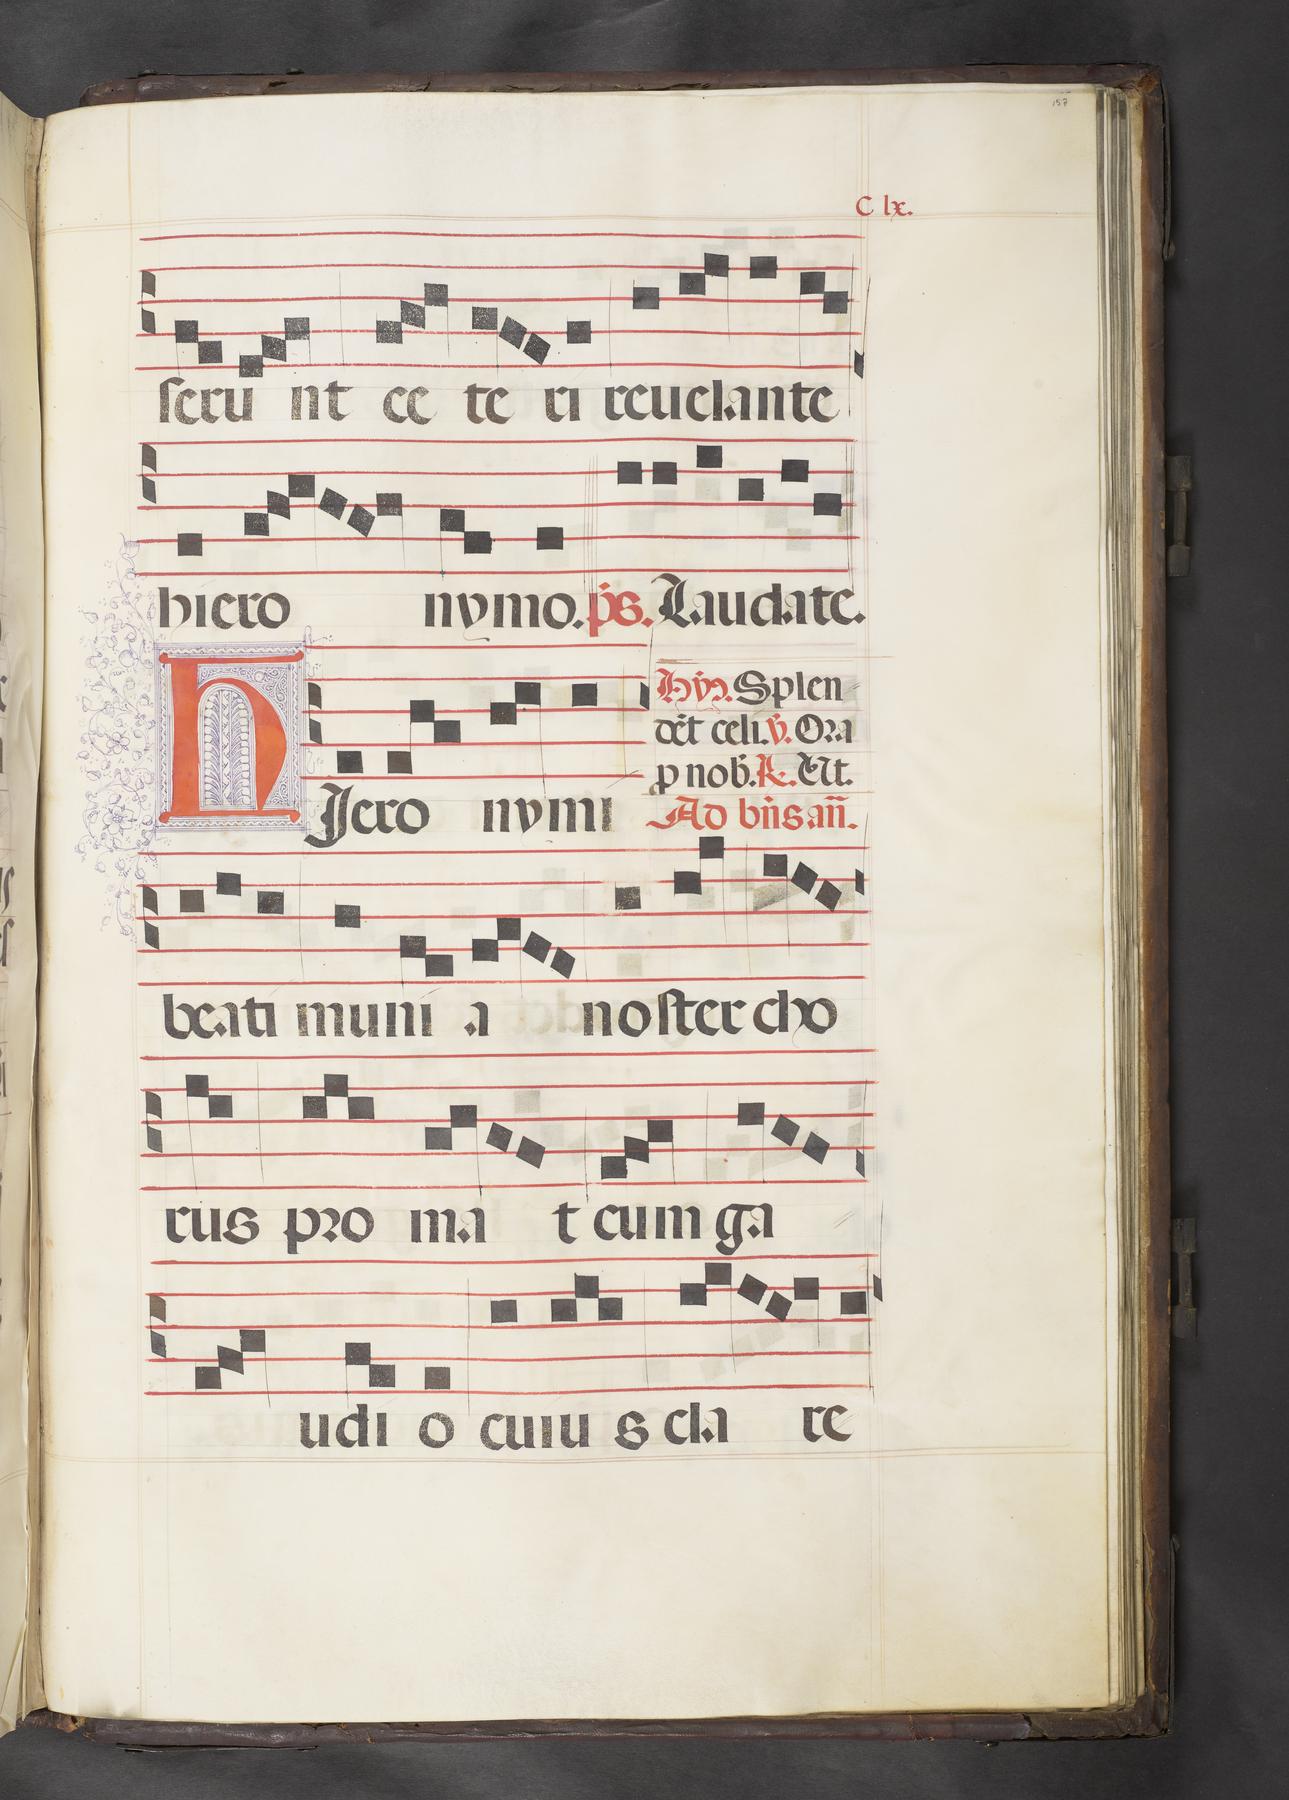 157
C lx.
seru nt ce te ri reuelante
hiero nymo. p̄s. Laudate.
Hyn̄. Splen
det celi. v̄. Ora
p nob̄. R. Ut.
HJero nymi Ad bn̄s an̄.
beati muni a noster cho
rus proma t cum ga
udi o cuiu s cla re